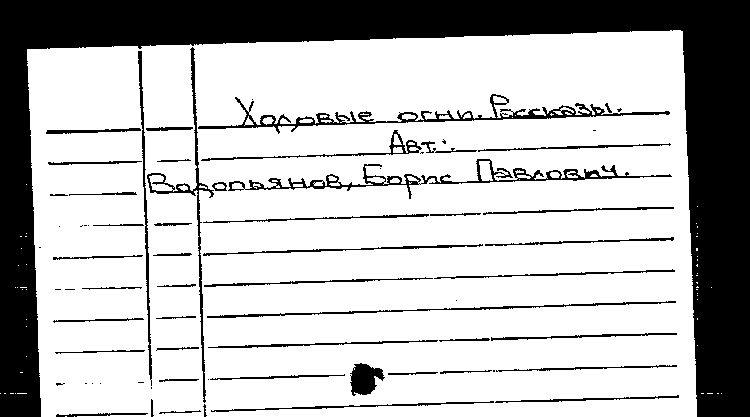 Ходовые огни. Рассказы.
Авт.:
Водопьянов, Борис Павлович.